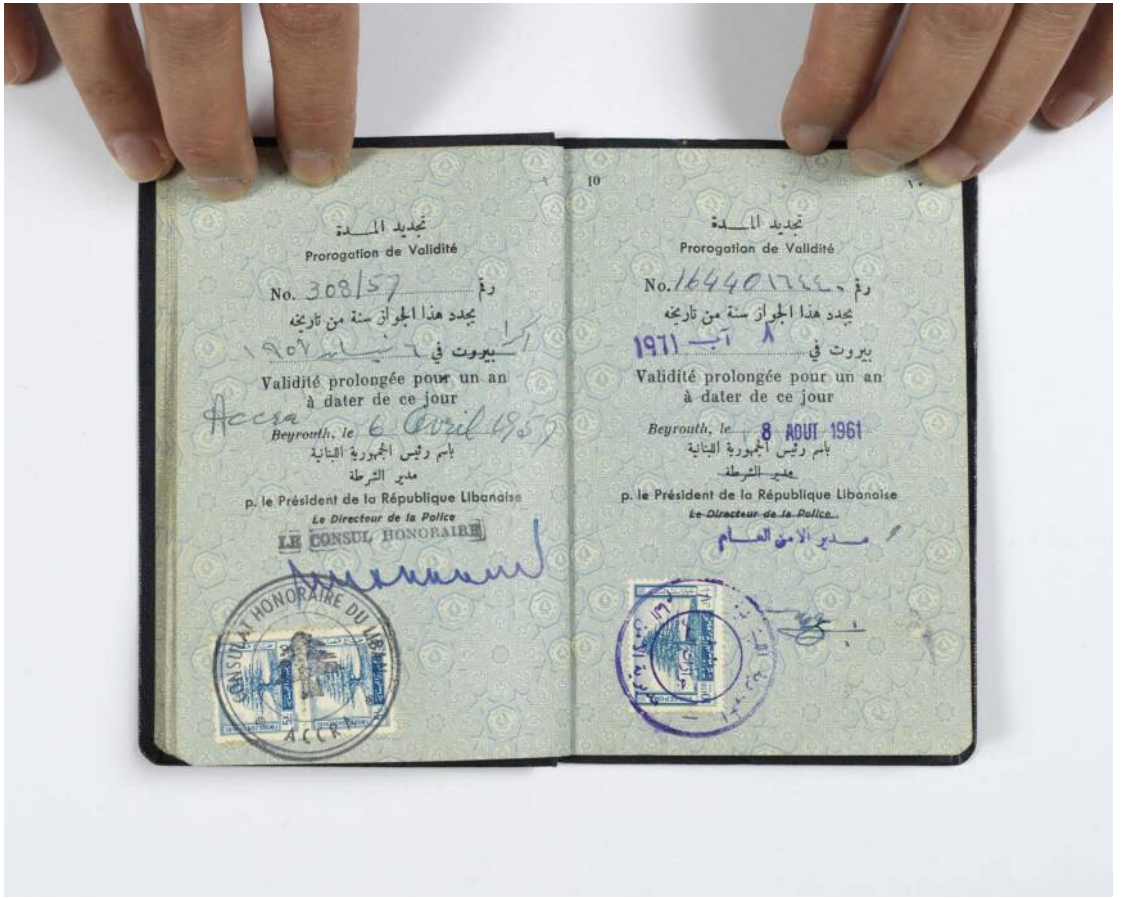 تجديد المــدة
Prorogation de Validité
No. 308/57 رقم
يجدد هذا الجواز سنة من تاريخه
اكرا
بيروت في ٦ نيسان ١٩٥٧
Validité prolongée pour un an
à dater de ce jour
Accra
Beyrouth, le 6 Avril 1957
باسم رئيس الجمهورية اللبنانية
مدير الشرطة
p. le Président de la République Libanaise
Le Directeur de la Police
LE CONSUL HONORAIRE
CONSULAT HONORAIRE DU LIBAN
ACCRA
10 ١٠
تجديد المــدة
Prorogation de Validité
No. 16440 ١٦٤٤٠ رقم
يجدد هذا الجواز سنة من تاريخه
بيروت في ٨ آب 1961
Validité prolongée pour un an
à dater de ce jour
Beyrouth, le 8 AOUT 1961
باسم رئيس الجمهورية اللبنانية
مدير الشرطة
p. le Président de la République Libanaise
Le Directeur de la Police
مدير الامن العام